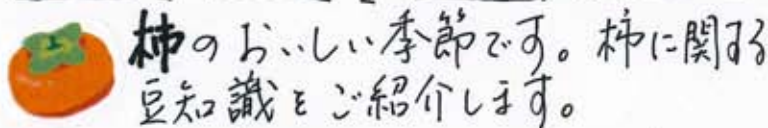 柿のおいしい季節です。柿に関する
豆知識をご紹介します。